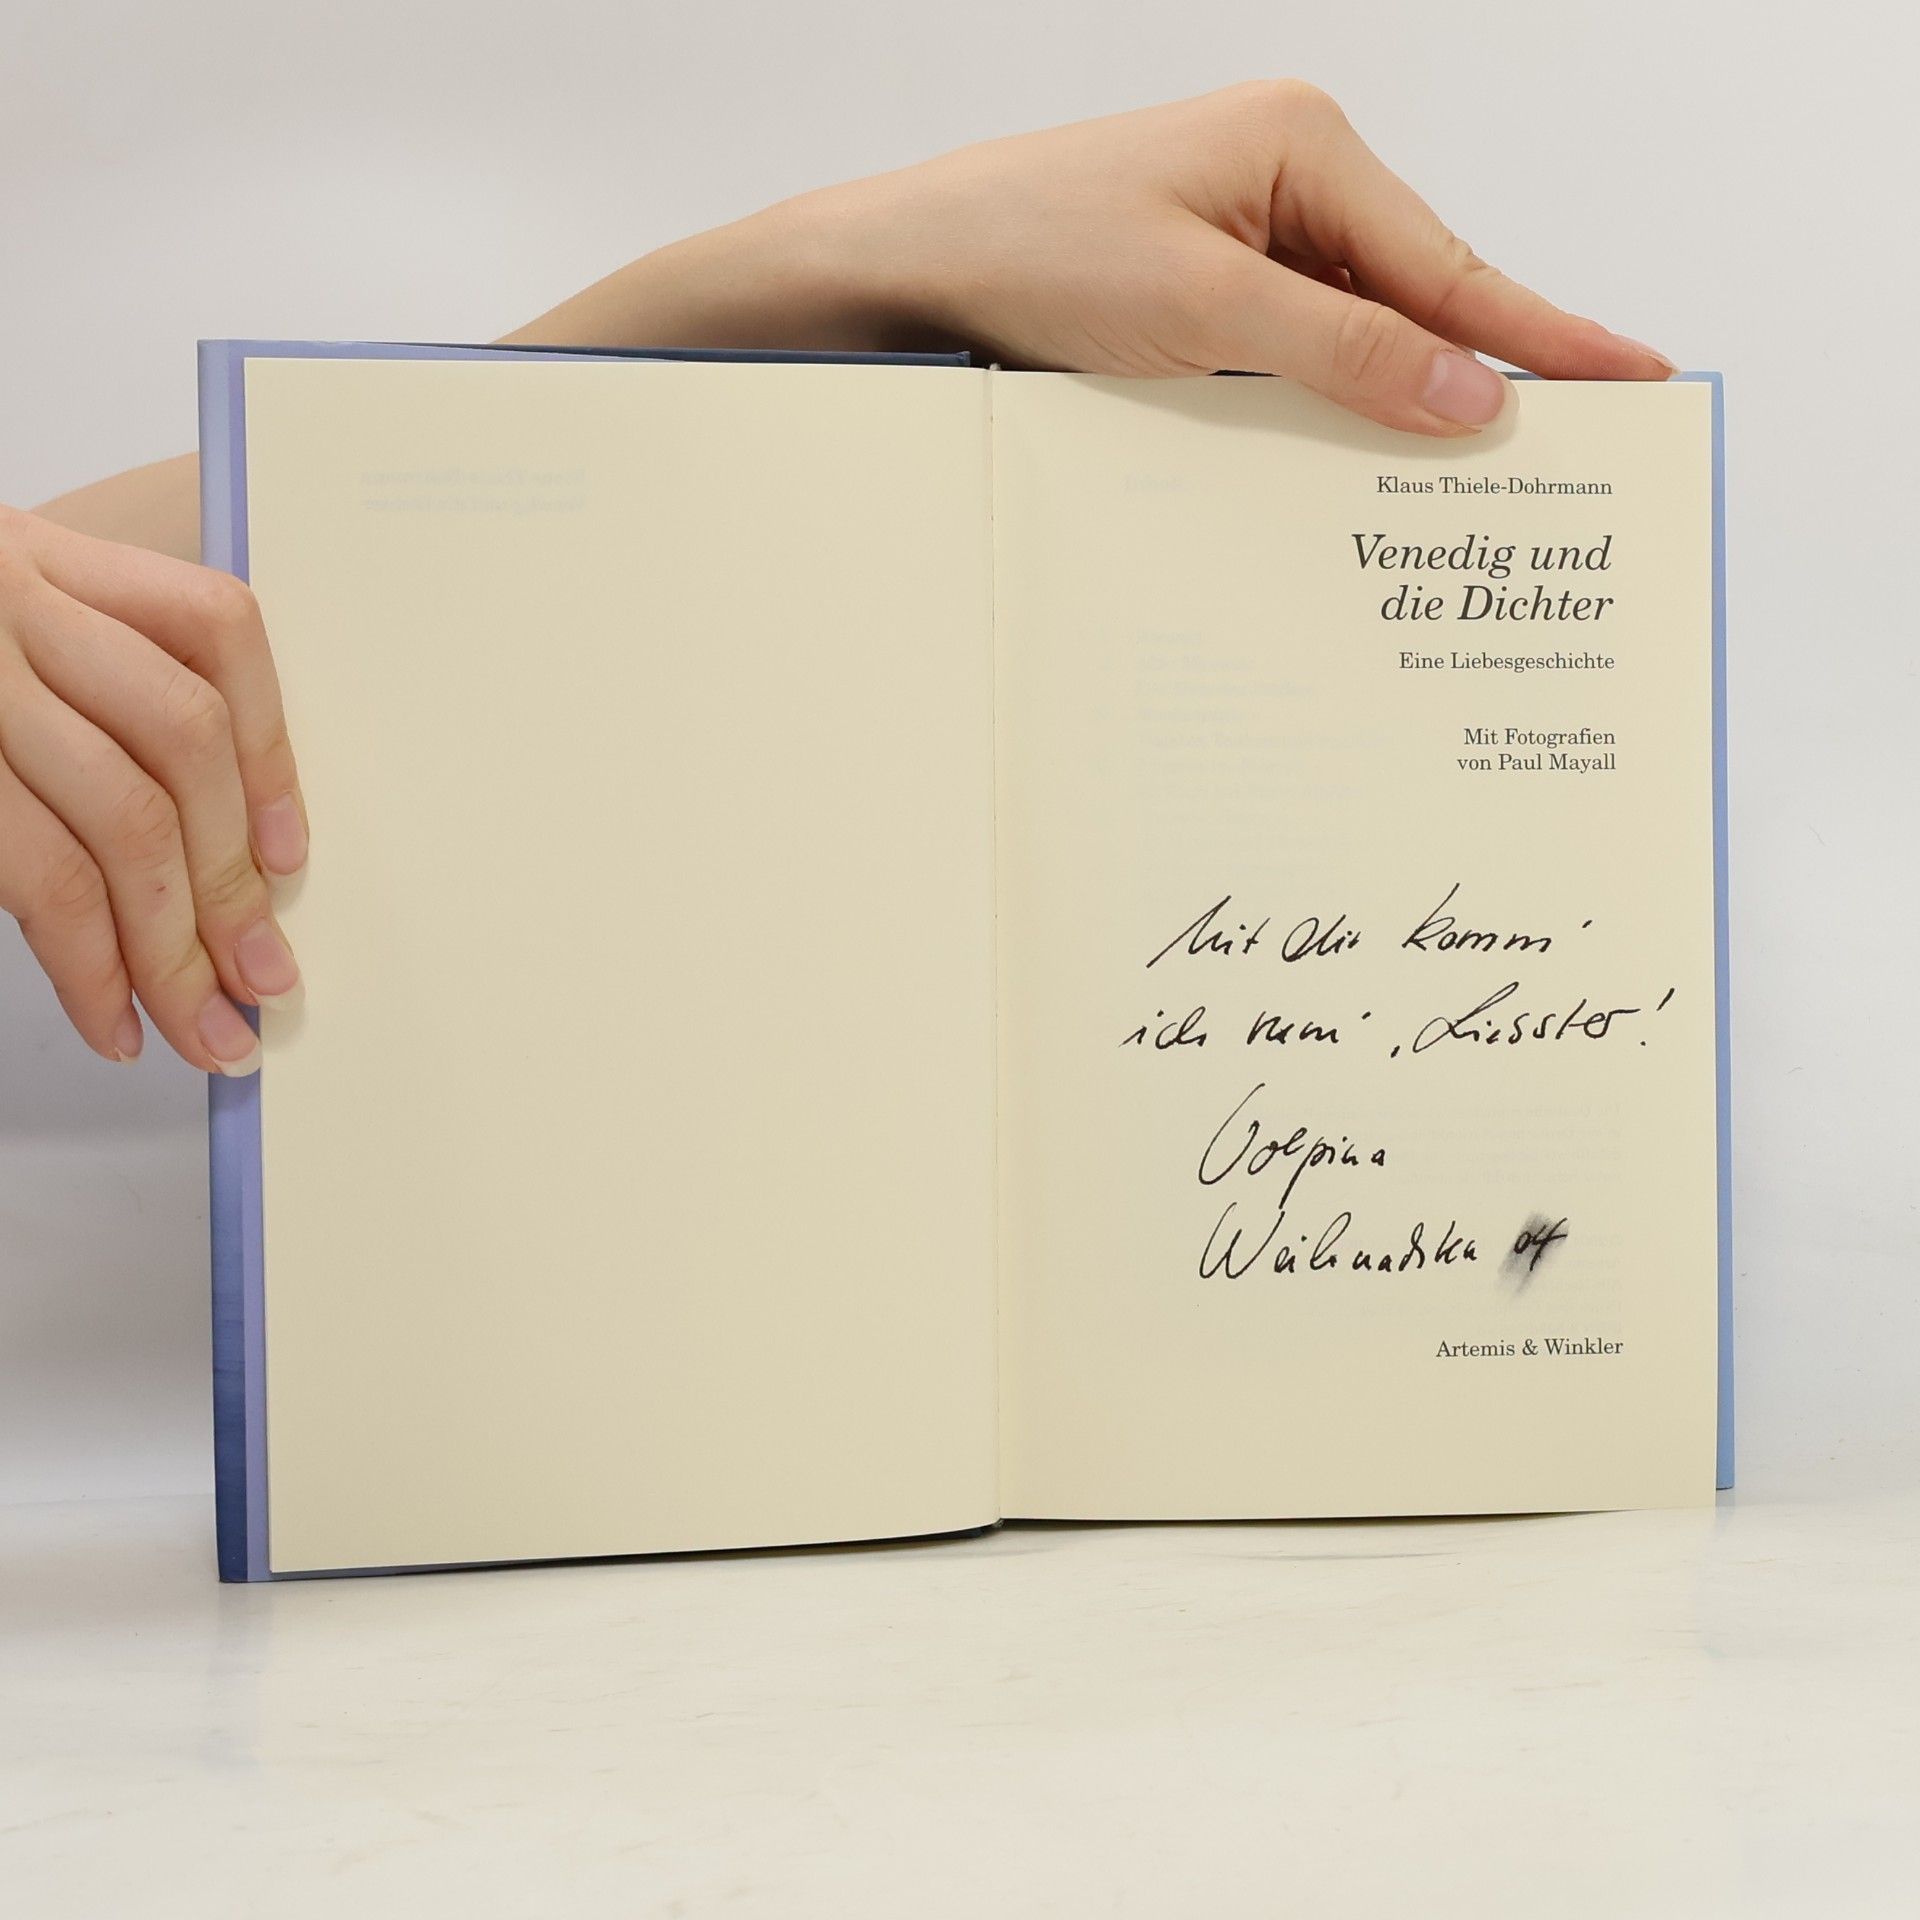 Klaus Thiele-Dohrmann
Venedig und
die Dichter
Eine Liebesgeschichte
Mit Fotografien
von Paul Mayall
Mit dir komm'
ich rum', Liebster!
Volpina
Weihnachten 04
Artemis & Winkler